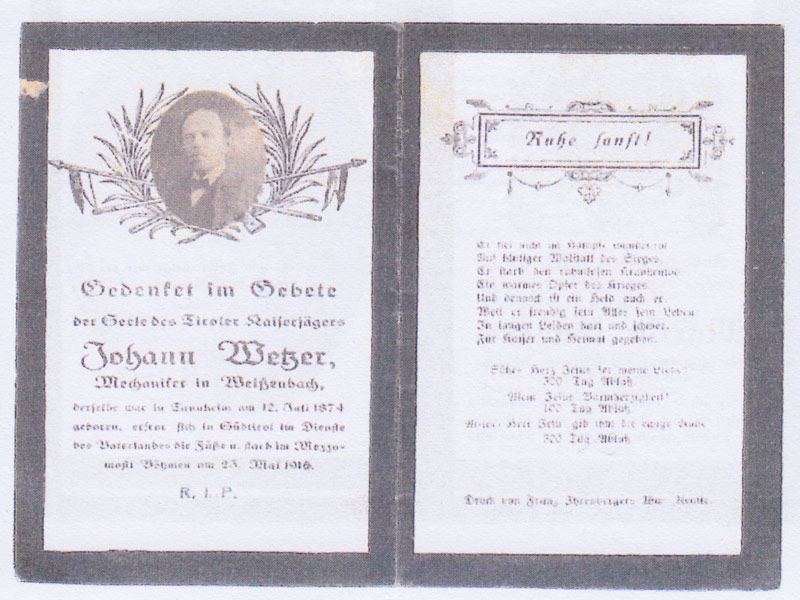 Gedenket im Gebete
der Seele des Tiroler Kaiserjägers
Johann Wetzer,
Mechaniker in Weißenbach,
derselbe war in Tannheim am 12. Juli 1874
geboren, erfror sich in Südtirol im Dienste
des Vaterlandes die Füße u. starb im
Böhmen am 23. Mai 1916.
R. I. P.
Ruhe sanft!
Er fiel nicht im Kampfe
Auf blutiger Walstatt des Sieges,
Er starb den ruhmlosen
Ein warmes Opfer des Krieges.
Und dennoch ist ein Held auch er
Weil er freudig sein Alles sein Leben
In langen Leiden hart und schwer,
Für Kaiser und Heimat gegeben.
Süßes Herz Jesus sei meine Liebe!
300 Tag Ablaß
Mein Jesus Barmherzigkeit!
100 Tag Ablaß
Herr Jesu, gib ihm die ewige Ruhe
300 Tag Ablaß
Druck von Franz